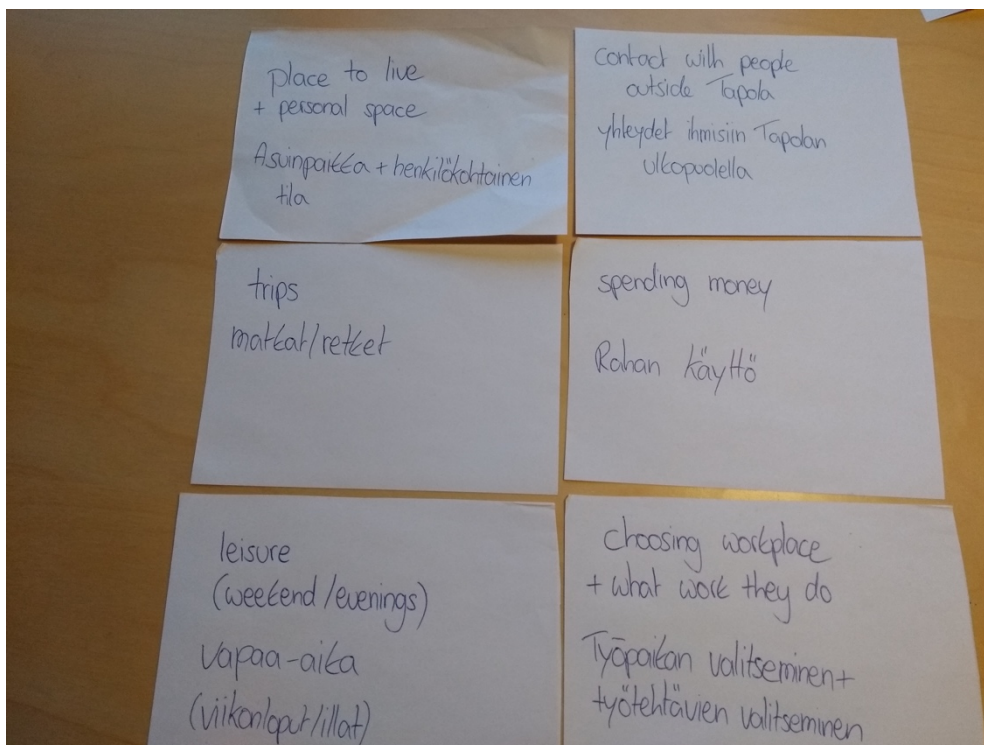 place to live
+ personal space
Asuinpaikka + henkilökohtainen
tila
contact with people
outside Tapola
yhteydet ihmisiin Tapolan
ulkopuolella
trips
matkat/retket
spending money
Rahan käyttö
leisure
(weekend/evenings)
vapaa-aika
(viikonloput/illat)
choosing workplace
+ what work they do
Työpaikan valitseminen +
työtehtävien valitseminen